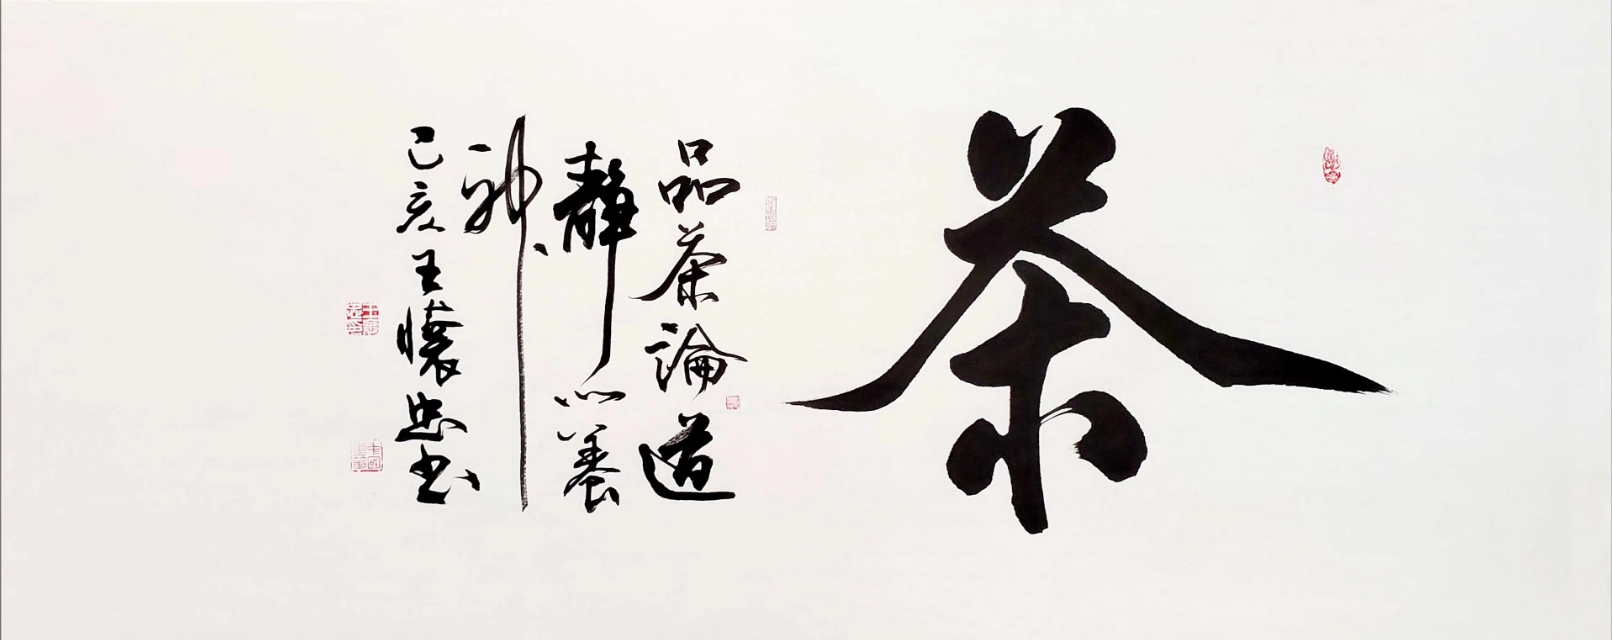 茶
品茶論道
靜心養
神
己亥王懷忠书